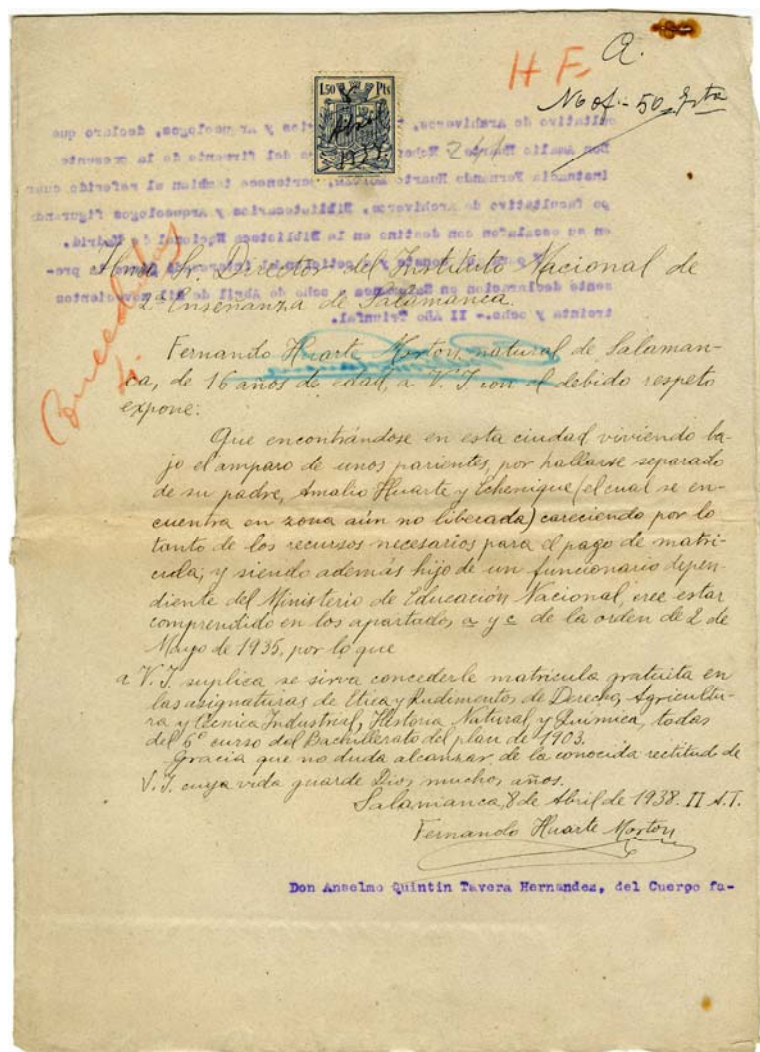 H F. a.
1,50 Pts
Abril
Fernando Huarte Morton, natural de Salaman-
ca, de 16 años de edad, a V.I. con el debido respeto
expone:
Que encontrándose en esta ciudad, viviendo ba-
jo el amparo de unos parientes, por hallarse separado
de su padre, Amalio Huarte y Echenique (el cual se en-
cuentra en zona aún no liberada) careciendo por lo
tanto de los recursos necesarios para el pago de matri-
cula; y siendo además hijo de un funcionario depen-
diente del Ministerio de Educación Nacional, cree estar
comprendido en los apartados a y c de la orden de 2 de
Mayo de 1935, por lo que
a V.I. suplica se sirva concederle matrícula gratuita en
las asignaturas de Etica y Rudimentos de Derecho, Agricultu-
ra y Técnica Industrial, Historia Natural y Química, todas
del 6º curso del Bachillerato del plan de 1903.
Gracia que no duda alcanzar de la conocida rectitud de
V.I. cuya vida guarde Dios muchos años.
Salamanca, 8 de Abril de 1938. II A.T.
Fernando Huarte Morton
Don Anselmo Quintin Tavera Hernandez, del Cuerpo fa-
Sr. Director del Instituto Nacional de
2ª Enseñanza de Salamanca.